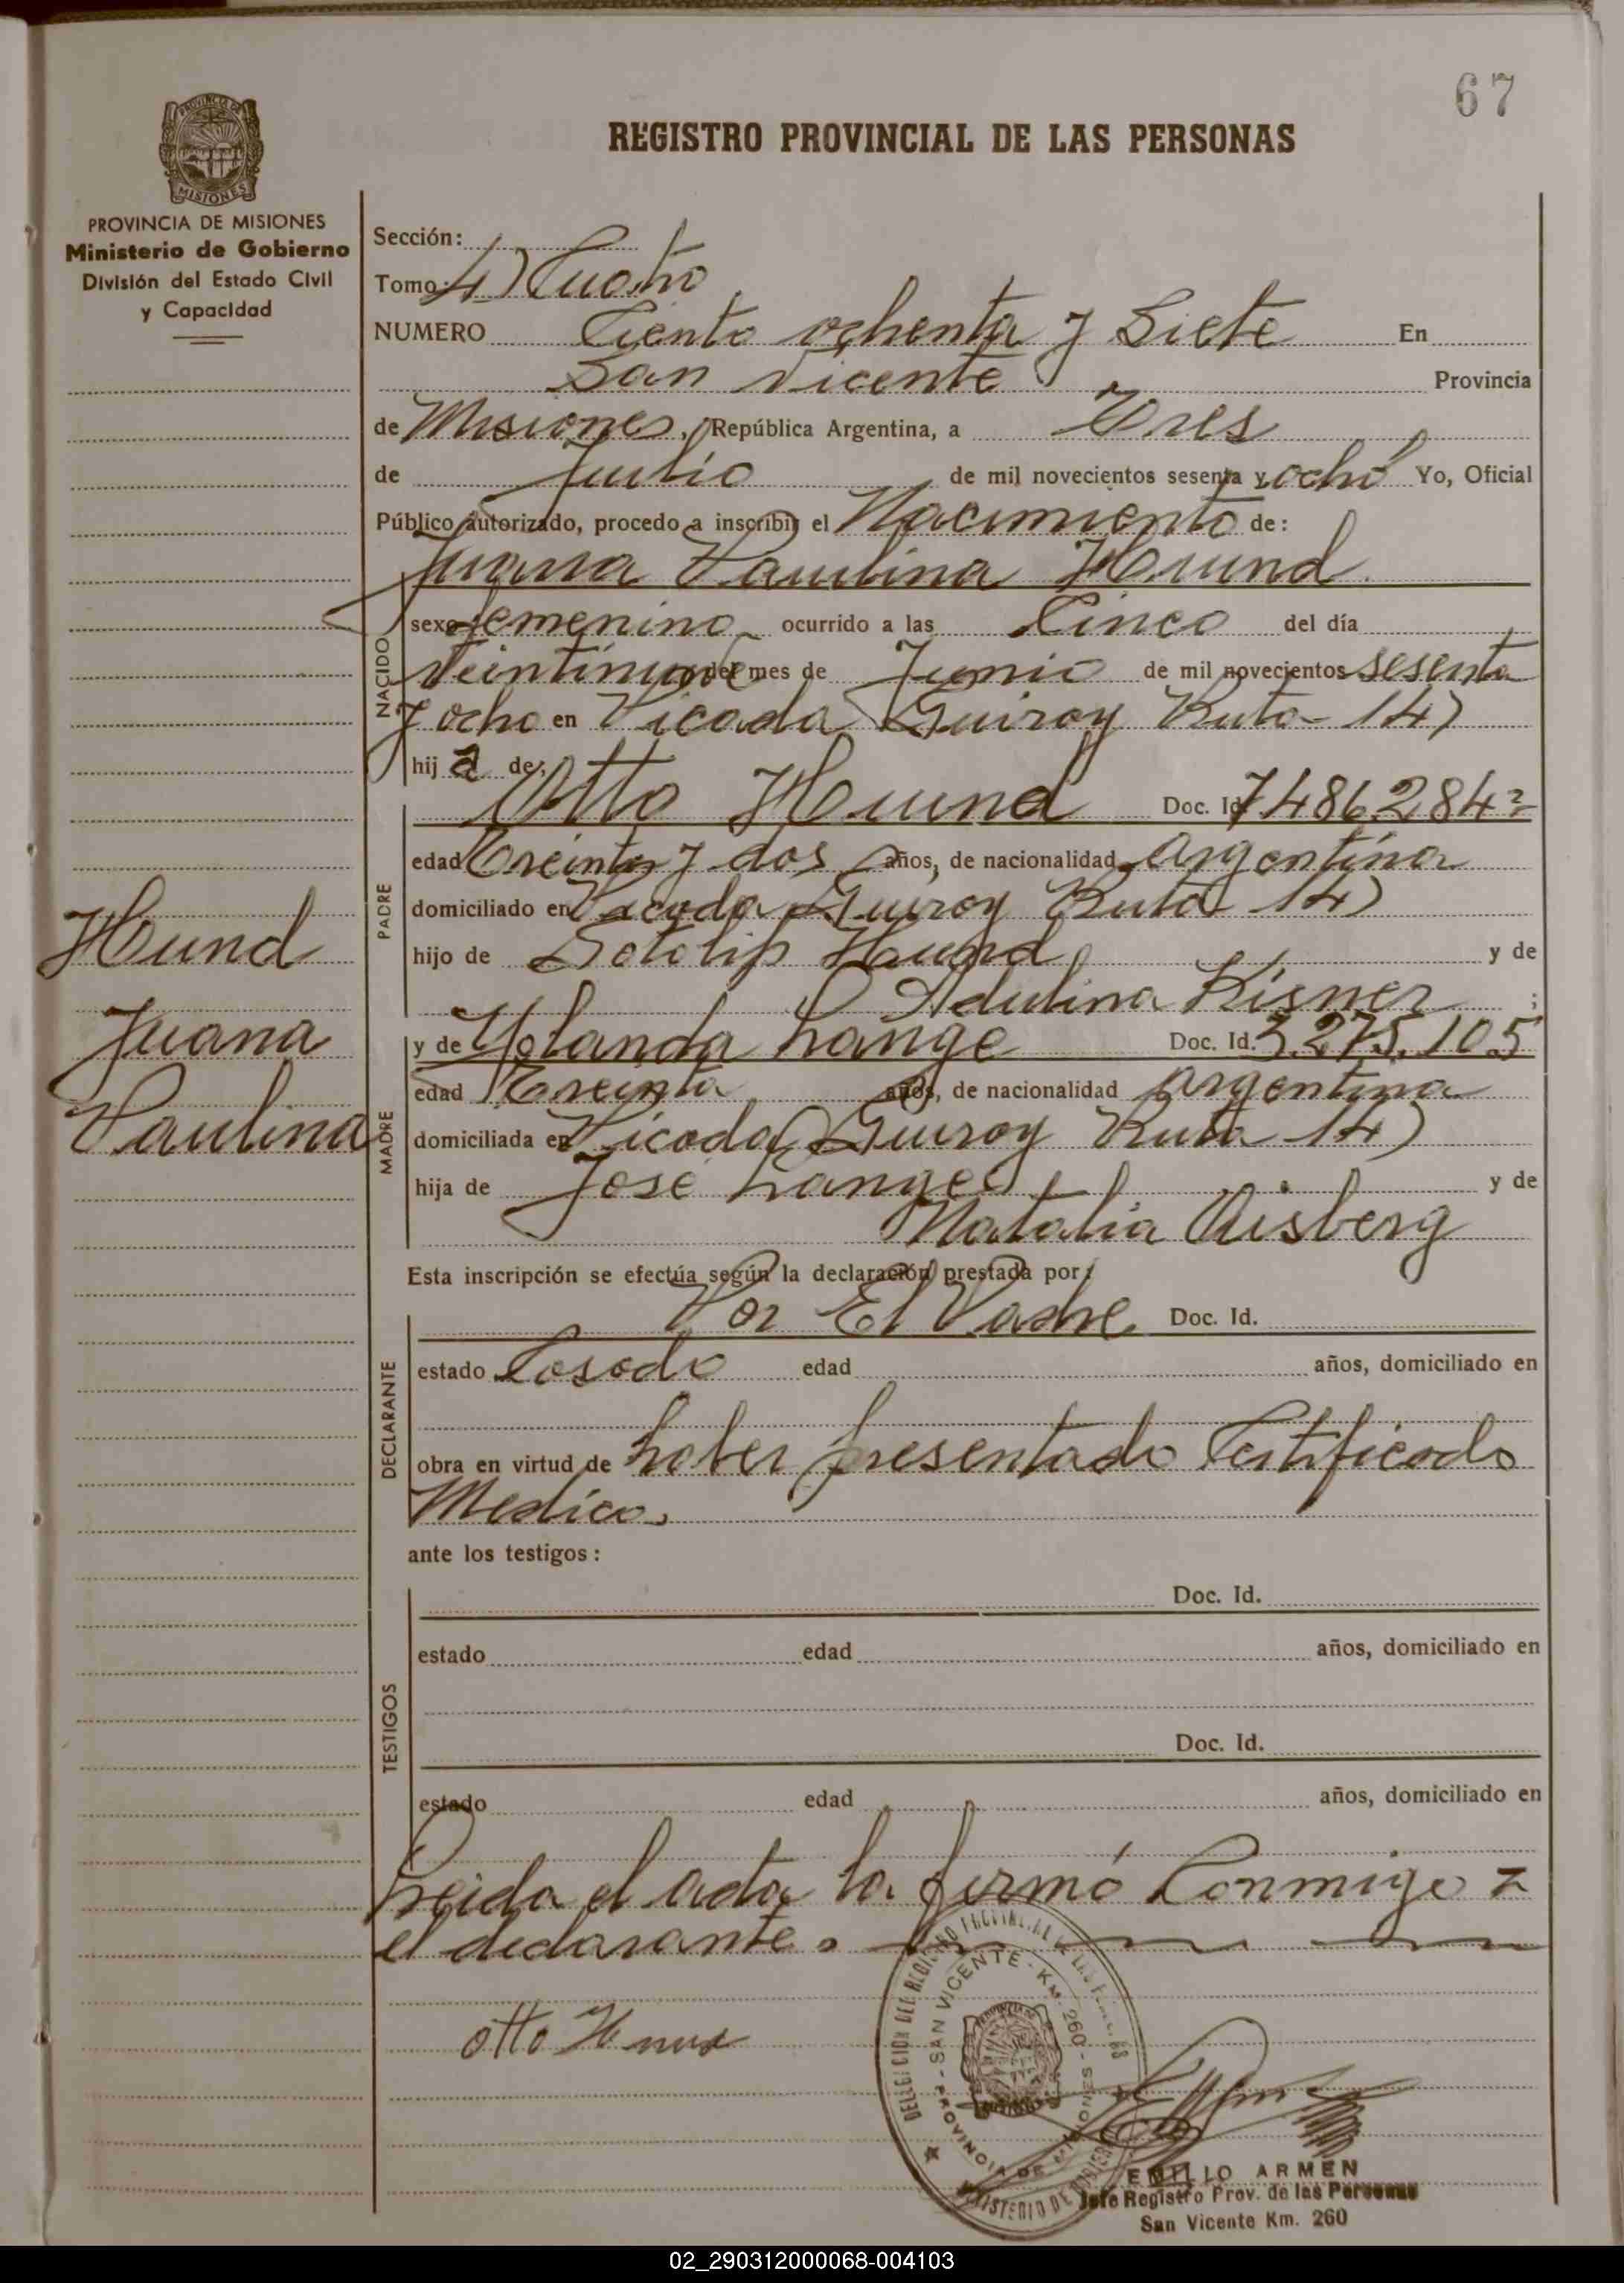 67
REGISTRO PROVINCIAL DE LAS PERSONAS
PROVINCIA DE MISIONES
MISIONES
PROVINCIA DE MISIONES
Ministerio de Gobierno
División del Estado Civil
y Capacidad
Sección:
Tomo: 4) Cuatro
NUMERO Ciento ochenta y Siete En
San Vicente Provincia
de Misiones, República Argentina, a Tres
de Julio de mil novecientos sesenta y ocho Yo, Oficial
Público autorizado, procedo a inscribir el Nacimiento de:
Juana Paulina Hund
NACIDO
sexo femenino ocurrido a las Cinco del día
Veintinueve del mes de Junio de mil novecientos sesenta
y ocho en Picada Guiroy Ruta 14)
hij a de:
Otto Hund Doc. Id 7486.284
PADRE
edad Treinta y dos años, de nacionalidad Argentina
domiciliado en Picada Guiroy Ruta 14)
hijo de Hund y de
Adulina Kisner ;
Hund
Juana
Paulina
y de Yolanda Lange Doc. Id. 3.275.105
MADRE
edad Treinta años, de nacionalidad Argentina
domiciliada en Picada Guiroy Ruta 14)
hija de José Lange y de
Natalia
Esta inscripción se efectúa según la declaración prestada por:
Por El Padre Doc. Id.
DECLARANTE
estado Casado edad años, domiciliado en
obra en virtud de haber presentado Certificado
Medico.
ante los testigos:
TESTIGOS
Doc. Id.
estado edad años, domiciliado en
Doc. Id.
estado edad años, domiciliado en
Leida el acta la firmó Conmigo
el declarante.
Otto Hund
DELEGACION DEL REGISTRO PROVINCIAL DE LAS
SAN VICENTE - KM. 260 - PROVINCIA DE MISIONES
MINISTERIO DE GOBIERNO
EMILIO ARMEN
Jefe Registro Prov. de las Personas
San Vicente Km. 260
02_290312000068-004103